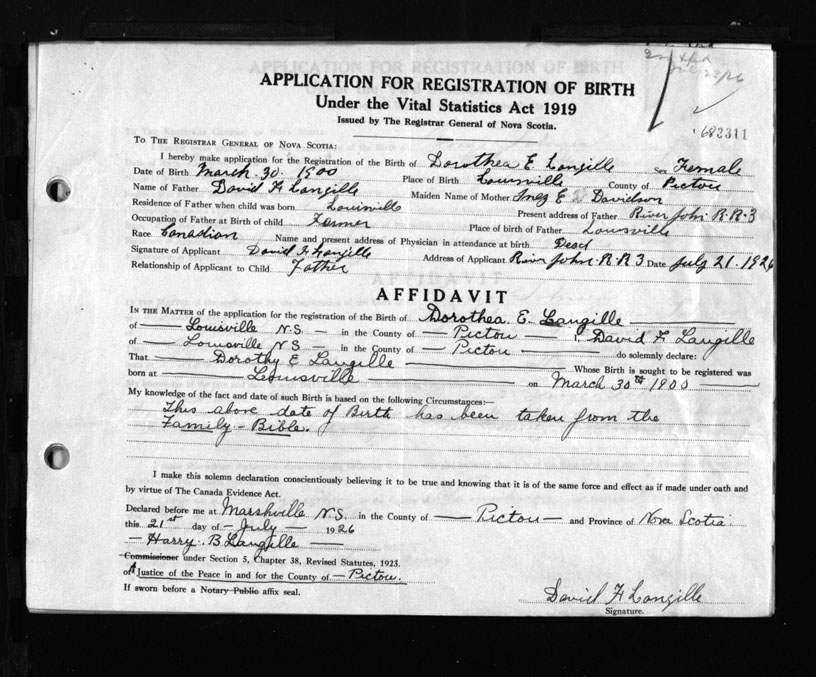 APPLICATION FOR REGISTRATION OF BIRTH
Under the Vital Statistics Act 1919
Issued by The Registrar General of Nova Scotia.
683311
TO THE REGISTRAR GENERAL OF NOVA SCOTIA:
I hereby make application for the Registration of the Birth of Dorothea E. Langille Sex Female
Date of Birth March. 30. 1900 Place of Birth Louisville County of Pictou
Name of Father David F Langille Maiden Name of Mother Inez E Davidson
Residence of Father when child was born Louisville Present address of Father River John R.R.3
Occupation of Father at Birth of child Farmer Place of birth of Father Louisville
Race Canadian Name and present address of Physician in attendance at birth Dead
Signature of Applicant David F Langille Address of Applicant River John. R R 3 Date July 21. 1926
Relationship of Applicant to Child Father
AFFIDAVIT
IN THE MATTER of the application for the registration of the Birth of Dorothea. E. Langille
of Louisville N.S in the County of Pictou I, David F Langille
of Louisville N S in the County of Pictou do solemnly declare:
That Dorothy E Langille Whose Birth is sought to be registered was
born at Louisville on March 30th 1900
My knowledge of the fact and date of such Birth is based on the following Circumstances:—
This above date of Birth has been taken from the
Family - Bible.
I make this solemn declaration conscientiously believing it to be true and knowing that it is of the same force and effect as if made under oath and
by virtue of The Canada Evidence Act.
Declared before me at Marshville N.S. in the County of Pictou and Province of Nova Scotia.
this 21st day of July 1926
Harry. B Langille
Commissioner under Section 5, Chapter 38, Revised Statutes, 1923.
of A Justice of the Peace in and for the County of Pictou.
If sworn before a Notary Public affix seal.
David F Langille
Signature.